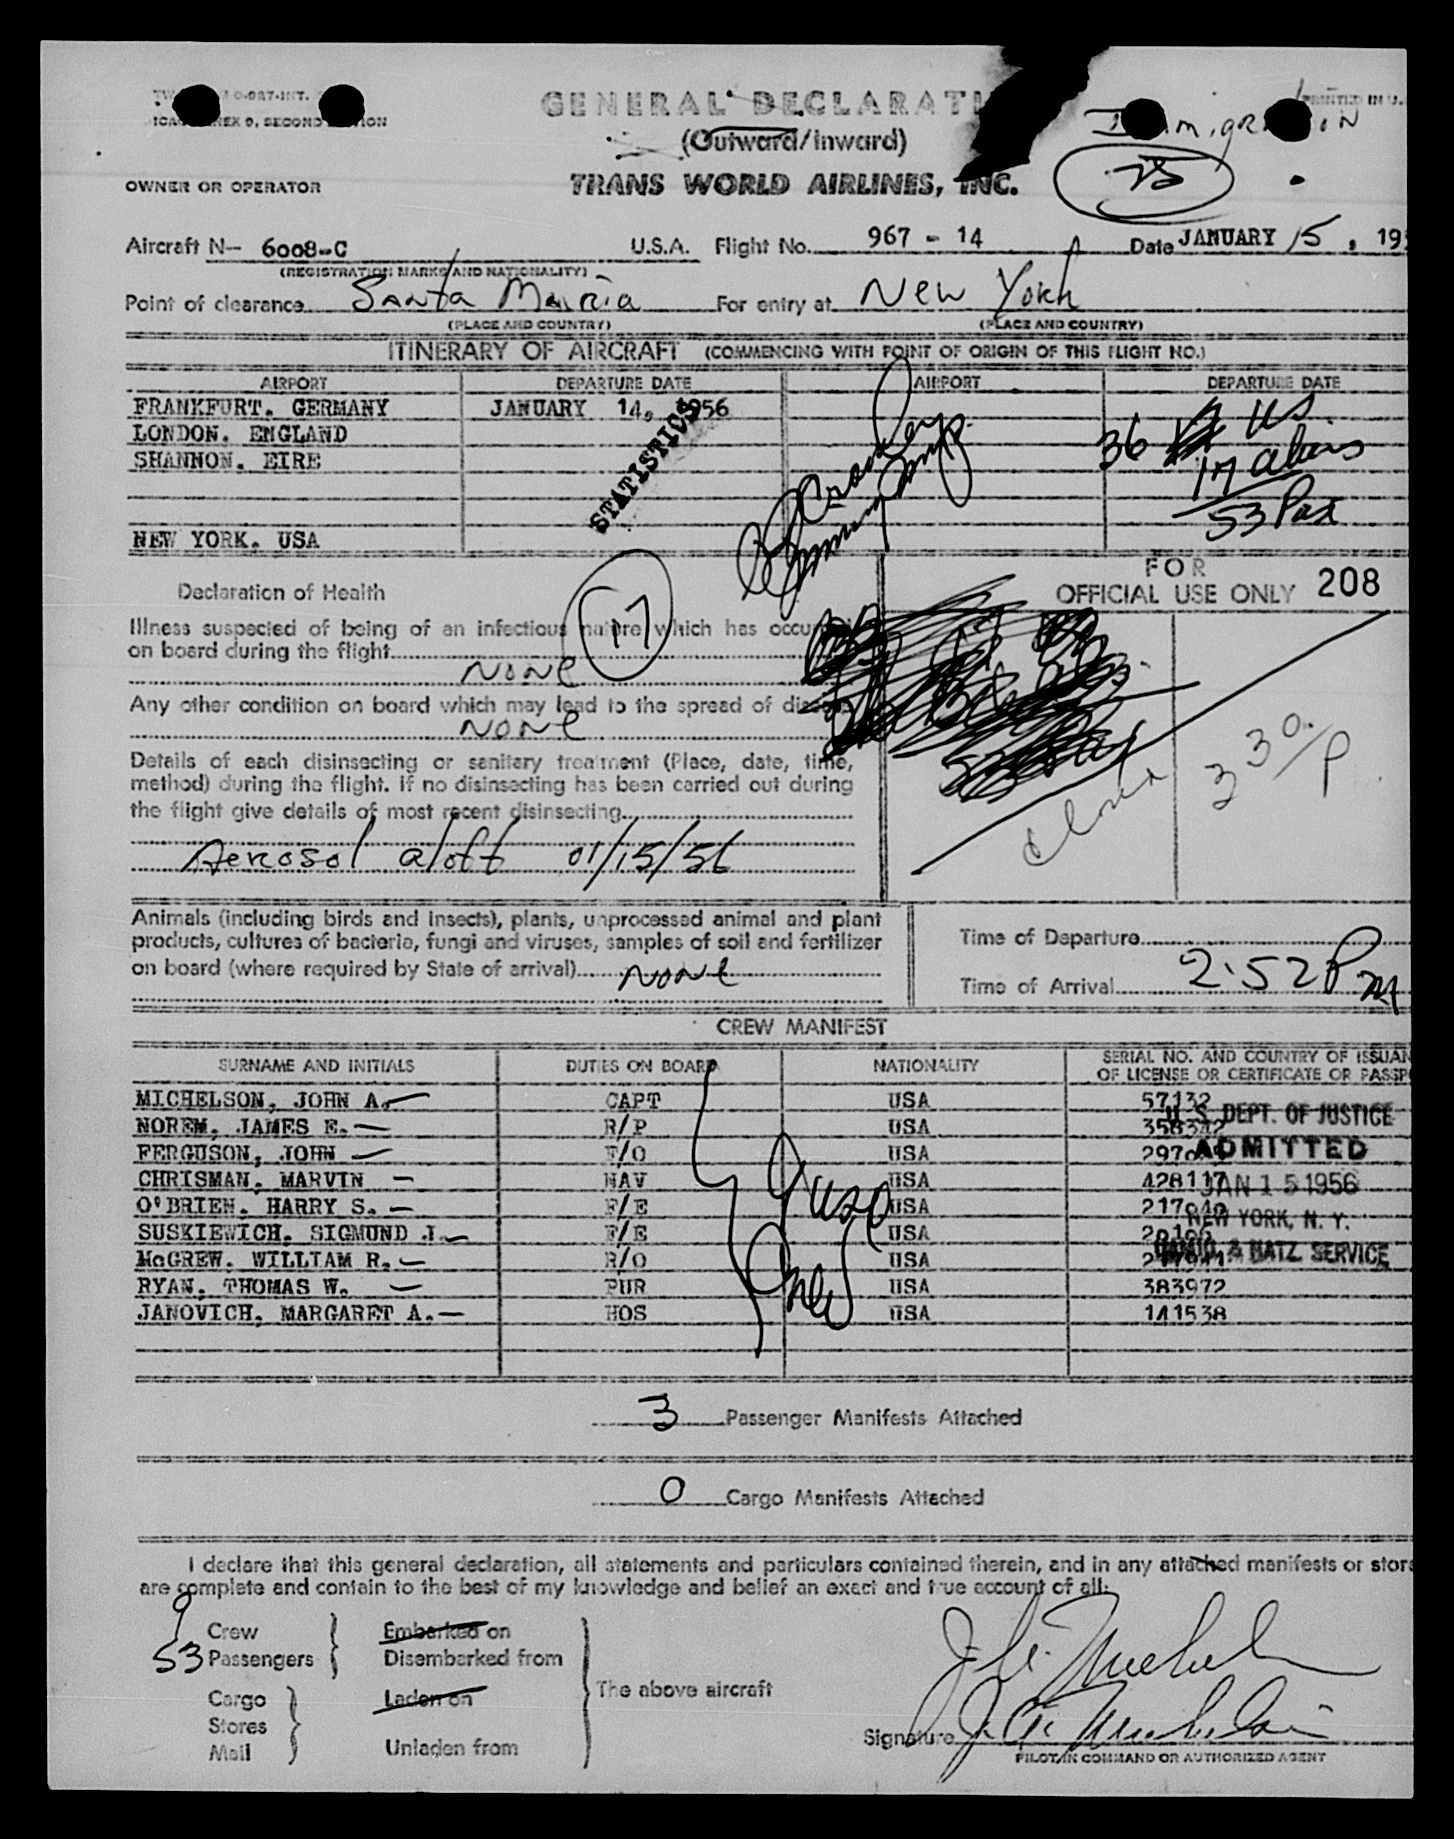 GENERAL DECLARATI
Immigration
(Outward/Inward)
25
OWNER OR OPERATOR TRANS WORLD AIRLINES, INC.
Aircraft N- 6008-C U.S.A. Flight No. 967 - 14 Date JANUARY 15, 19
(REGISTRATION MARKS AND NATIONALITY)
Point of clearance Santa Maria For entry at New York
(PLACE AND COUNTRY) (PLACE AND COUNTRY)
ITINERARY OF AIRCRAFT (COMMENCING WITH POINT OF ORIGIN OF THIS FLIGHT NO.)
AIRPORT DEPARTURE DATE AIRPORT DEPARTURE DATE
FRANKFURT. GERMANY JANUARY 14, 1956
LONDON. ENGLAND
SHANNON. EIRE
NEW YORK. USA
STATISTICS
36 US
17 aliens
53 Pax
Declaration of Health
17
FOR
OFFICIAL USE ONLY 208
Illness suspected of being of an infectious nature which has occurred
on board during the flight
None
Any other condition on board which may lead to the spread of disease
None
Details of each disinsecting or sanitary treatment (Place, date, time,
method) during the flight. If no disinsecting has been carried out during
the flight give details of most recent disinsecting
Aerosol aloft 01/15/56
330/P
Animals (including birds and insects), plants, unprocessed animal and plant
products, cultures of bacteria, fungi and viruses, samples of soil and fertilizer
on board (where required by State of arrival) None
Time of Departure
Time of Arrival 2:52 Pm
CREW MANIFEST
SURNAME AND INITIALS DUTIES ON BOARD NATIONALITY SERIAL NO. AND COUNTRY OF ISSUAN
OF LICENSE OR CERTIFICATE OR PASSP
MICHELSON, JOHN A. CAPT USA 57132
NOREM, JAMES E. R/P USA 358342
FERGUSON, JOHN F/O USA
CHRISMAN, MARVIN NAV USA 428117
O'BRIEN, HARRY S. F/E USA
SUSKIEWICH, SIGMUND J. F/E USA
McGREW, WILLIAM R. R/O USA
RYAN, THOMAS W. PUR USA 383972
JANOVICH, MARGARET A. HOS USA 141538
U. S. DEPT. OF JUSTICE
ADMITTED
JAN 15 1956
NEW YORK, N. Y.
IMMIG. & NATZ. SERVICE
3 Passenger Manifests Attached
0 Cargo Manifests Attached
I declare that this general declaration, all statements and particulars contained therein, and in any attached manifests or stor
are complete and contain to the best of my knowledge and belief an exact and true account of all:
9 Crew Embarked on
53 Passengers Disembarked from
Cargo Laden on The above aircraft
Stores
Mail Unladen from
Signature J. A. Michelson
PILOT IN COMMAND OR AUTHORIZED AGENT